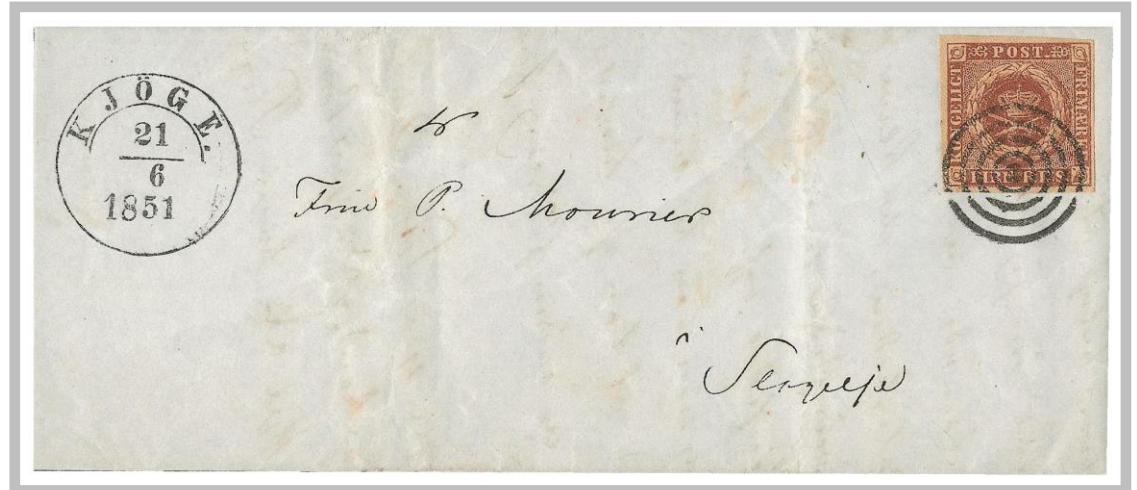 KJÖGE.
21
6
1851
POST.
KONGELIGT
FRIMÆRKE
FIRE R.B.S.
P. Mourier
i